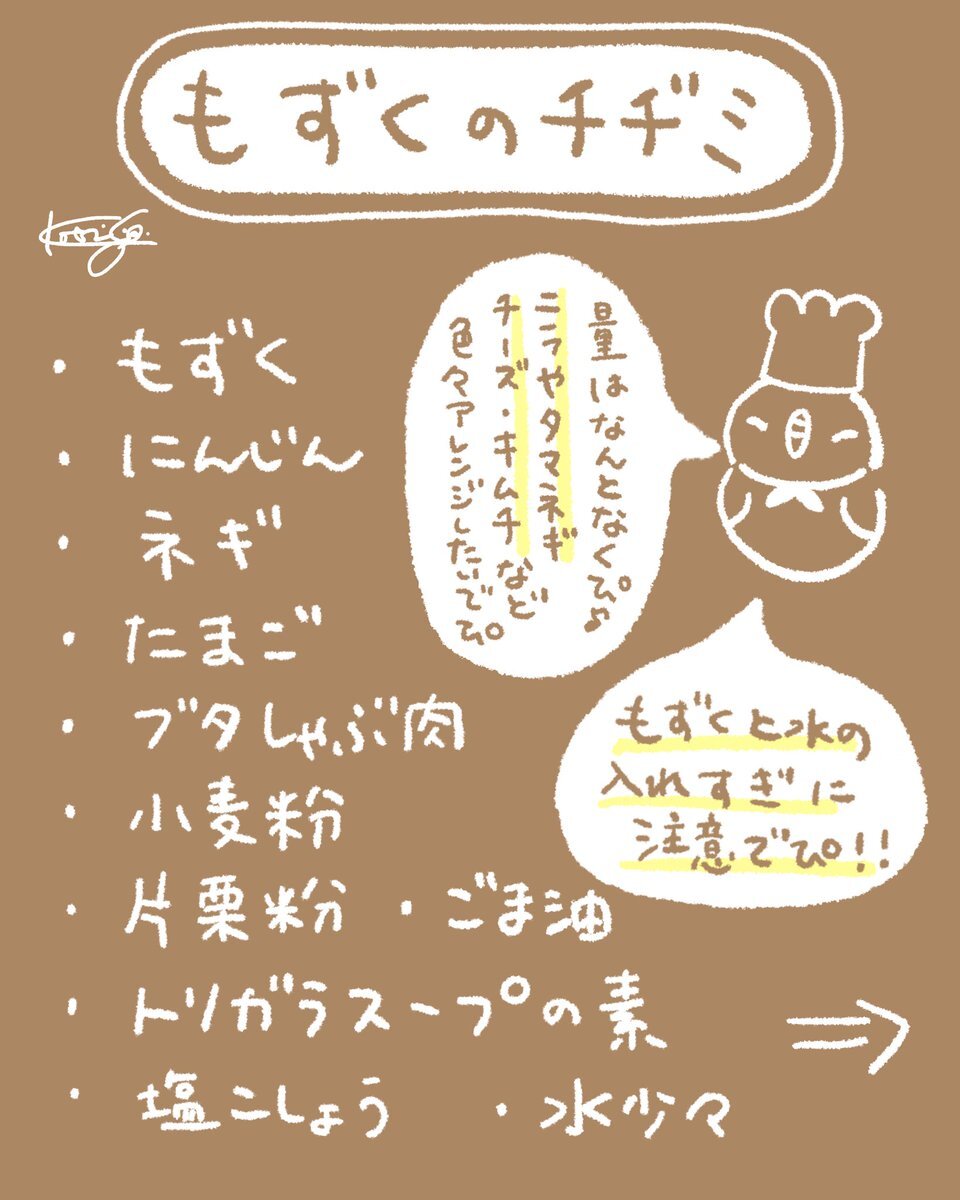 もずくのチヂミ
・もずく
・にんじん
・ネギ
・たまご
・ブタしゃぶ肉
・小麦粉
・片栗粉 ・ごま油
・トリガラスープの素
・塩こしょう ・水少々
量はなんとなくぴ♪
ニラやタマネギ
チーズ・キムチなど
色々アレンジしたいでぴ
もずくと水の
入れすぎに
注意でぴ!!